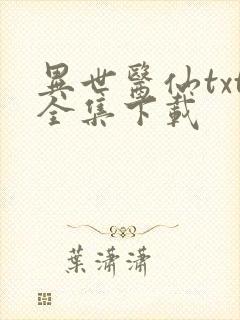 異世醫仙txt
全集下載
葉瀟瀟